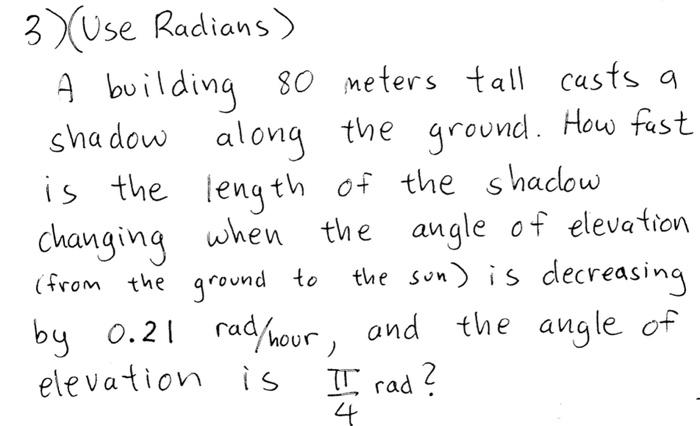 3) (Use Radians)
A building 80 meters tall casts a
shadow along the ground. How fast
is the length of the shadow
changing when the angle of elevation
(from the ground to the sun) is decreasing
by 0.21 rad/hour, and the angle of
elevation is π/4 rad?